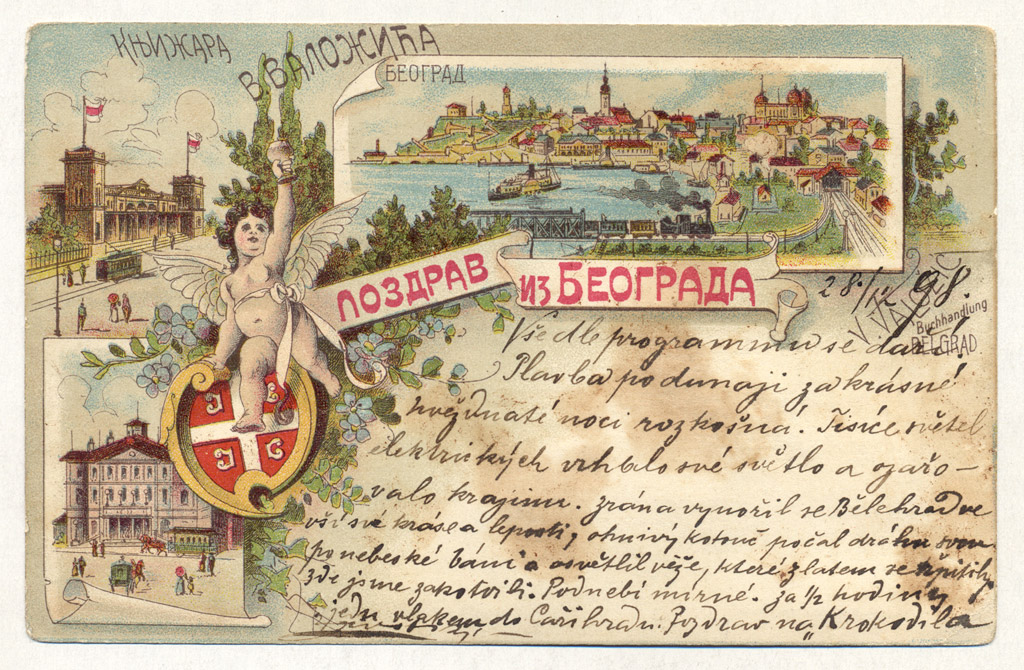 КЊИЖАРА
В. ВАЛОЖИЋА
БЕОГРАД
ПОЗДРАВ
ИЗ БЕОГРАДА
28./ 98.
V. VALOŽIĆ
Buchhandlung
BELGRAD
Vše dle programmu se daří
Plavba po dunaji za krásné
hvězdnaté noci rozkošná. Tisíce světel
elektrických vrhalo své světlo a ozařo-
valo krajinu. Zrána vynořil se Bělehrad ve
vší své kráse a leposti, ohnivý kotouč počal dráhu svou
po nebeské báni a osvětlil věže, které zlatem se třpytily
zde jsme zakotvili. Podnebí mírné. Za 1/2 hodiny
jedu vlakem do Cařihradu. Pozdrav na „Krokodila